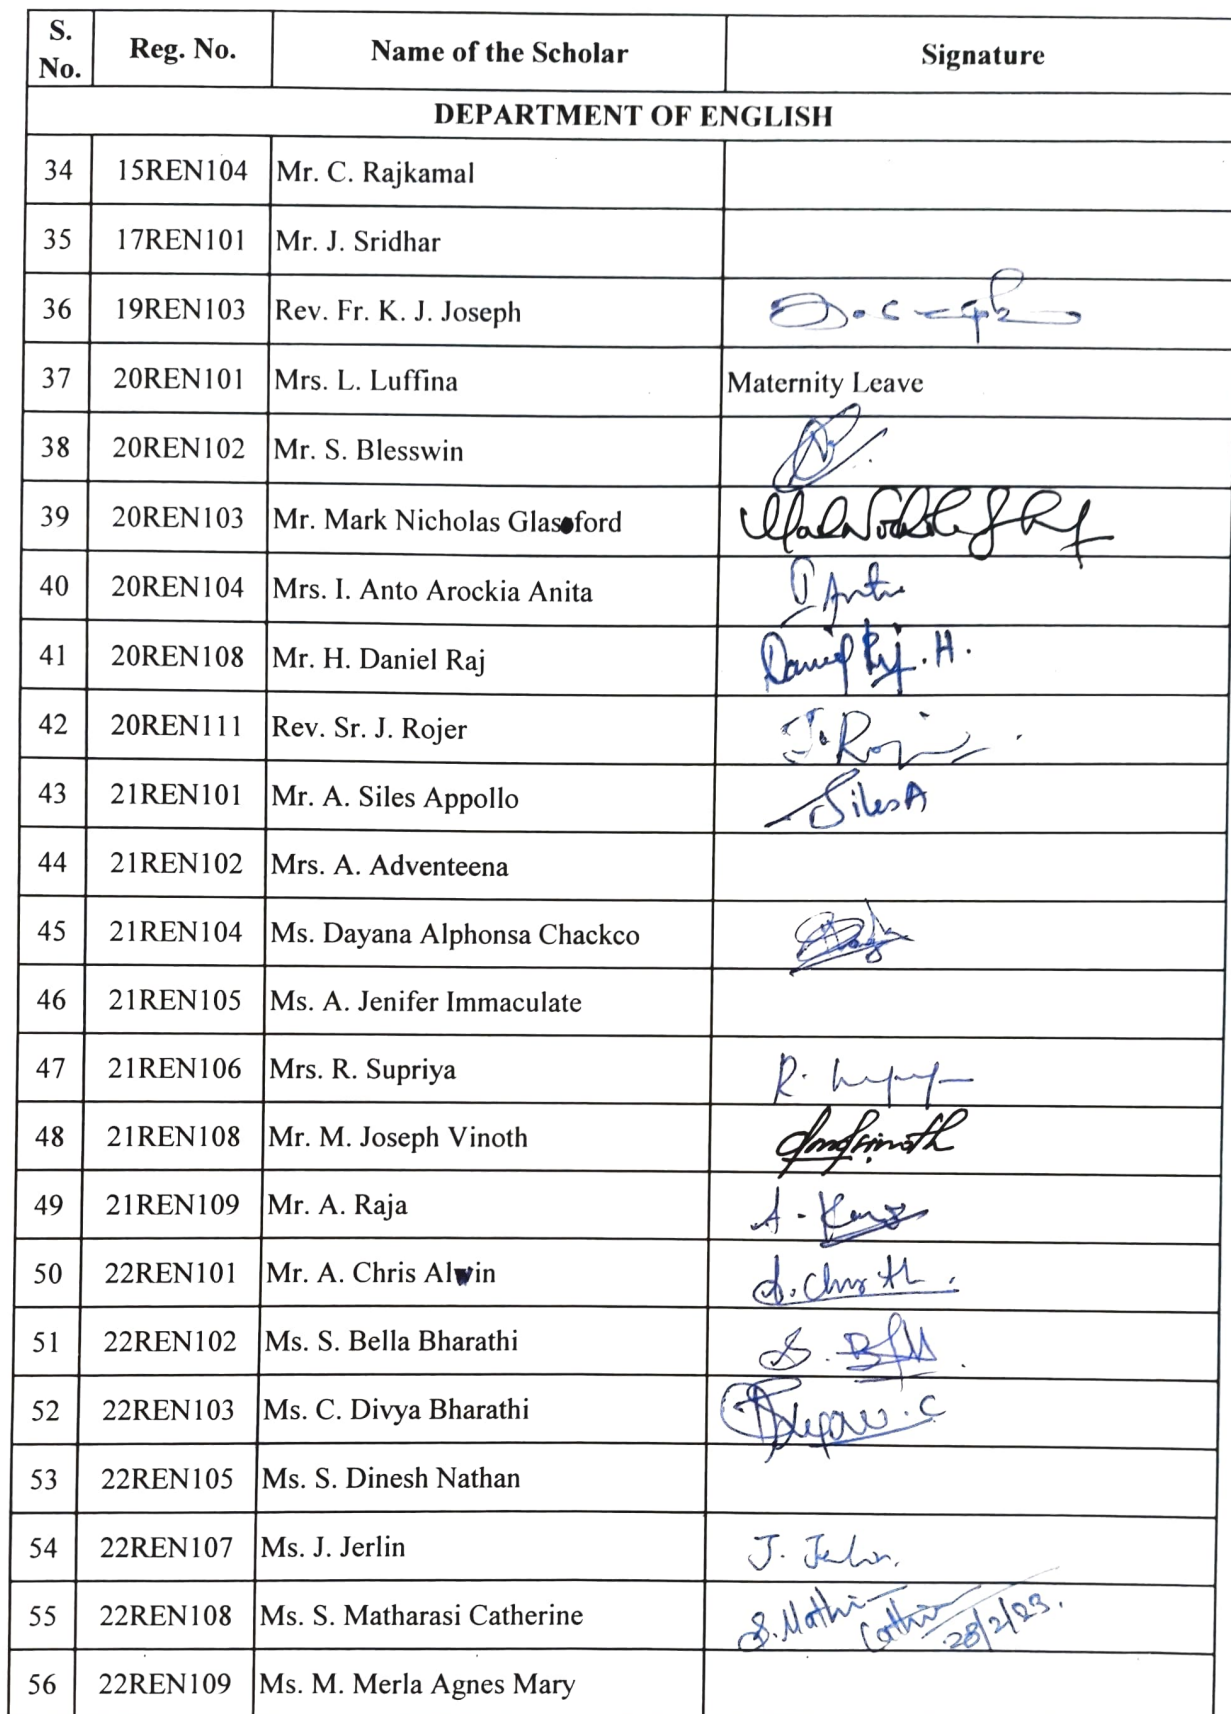 S. No. Reg. No. Name of the Scholar Signature
DEPARTMENT OF ENGLISH
34 15REN104 Mr. C. Rajkamal
35 17REN101 Mr. J. Sridhar
36 19REN103 Rev. Fr. K. J. Joseph
37 20REN101 Mrs. L. Luffina Maternity Leave
38 20REN102 Mr. S. Blesswin
39 20REN103 Mr. Mark Nicholas
40 20REN104 Mrs. I. Anto Arockia Anita
41 20REN108 Mr. H. Daniel Raj Daniel Raj. H.
42 20REN111 Rev. Sr. J. Rojer
43 21REN101 Mr. A. Siles Appollo Siles A
44 21REN102 Mrs. A. Adventeena
45 21REN104 Ms. Dayana Alphonsa Chackco
46 21REN105 Ms. A. Jenifer Immaculate
47 21REN106 Mrs. R. Supriya
48 21REN108 Mr. M. Joseph Vinoth
49 21REN109 Mr. A. Raja
50 22REN101 Mr. A. Chris Alwin
51 22REN102 Ms. S. Bella Bharathi
52 22REN103 Ms. C. Divya Bharathi
53 22REN105 Ms. S. Dinesh Nathan
54 22REN107 Ms. J. Jerlin J. Jerlin.
55 22REN108 Ms. S. Matharasi Catherine 28/2/23.
56 22REN109 Ms. M. Merla Agnes Mary